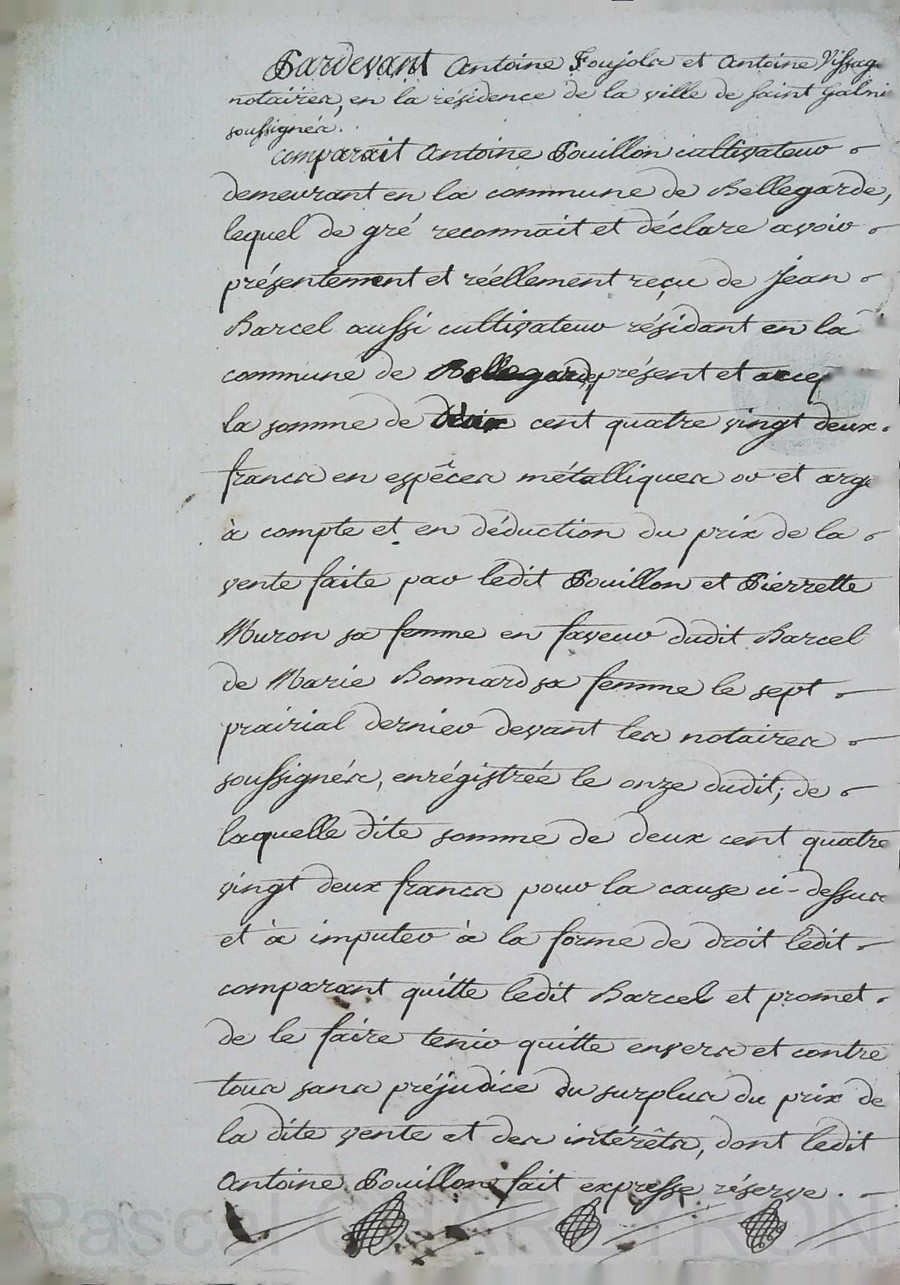 Pardevant Antoine Foujols et Antoine Vissag
notaires, en la résidence de la ville de saint Galmi
soussignés.
comparait Antoine Pouillon cultivateur
demeurant en la commune de Bellegarde,
lequel de gré reconnait et déclare avoir
présentement et réellement reçu de Jean
Barcel aussi cultivateur résidant en la
commune de Bellegarde, présent et accep
la somme de cent quatre vingt deux
francs en espêces métalliques or et arge
à compte et en déduction du prix de la
vente faite par ledit Pouillon et Pierrette
Muron sa femme en faveur dudit Barcel
de Marie Bonnard sa femme le sept
prairial dernier devant les notaires
soussignés, enrégistrée le onze dudit; de
laquelle dite somme de deux cent quatre
vingt deux francs pour la cause ci-dessus
et à imputer à la forme de droit ledit
comparant quitte ledit Barcel et promet
de le faire tenir quitte envers et contre
tous sans préjudice du surplus du prix de
la dite vente et des intérêts, dont ledit
Antoine Pouillon fait expresse réserve.
Pascal CHAREYRON